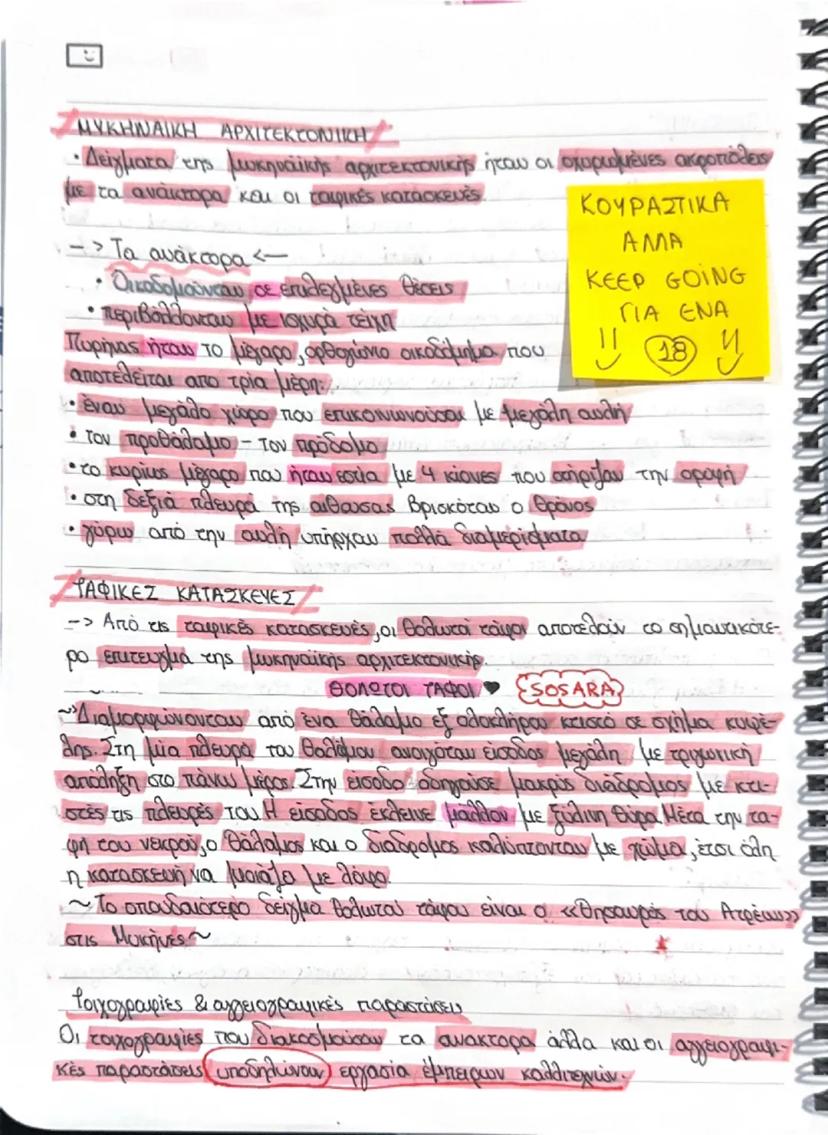 ΜΥΚΗΝΑΙΚΗ ΑΡΧΙΤΕΚΤΟΝΙΚΗ
• Δείγματα της μυκηναϊκής αρχιτεκτονικής ήταν οι οχυρωμένες ακροπόλεις
με τα ανάκτορα και οι ταφικές κατασκευές.
ΚΟΥΡΑΣΤΙΚΑ
ΑΜΑ
KEEP GOING
ΓΙΑ ΕΝΑ
18
-> Τα ανάκτορα <-
• Οικοδομούνταν σε επιλεγμένες θέσεις
• περιβάλλονταν με ισχυρά τείχη
Πυρήνας ήταν το μέγαρο, ορθογώνιο οικοδόμημα που
αποτελείται από τρία μέρη:
• έναν μεγάλο χώρο που επικοινωνούσαι με μεγάλη αυλή
• τον προθάλαμο - τον πρόδομο
• το κυρίως μέγαρο που ήταν εστία με 4 κίονες που στήριζαν την οροφή
• στη δεξιά πλευρά της αίθουσας βρισκόταν ο θρόνος
• γύρω από την αυλή υπήρχαν πολλά διαμερίσματα
ΤΑΦΙΚΕΣ ΚΑΤΑΣΚΕΥΕΣ
-> Από τις ταφικές κατασκευές, οι θολωτοί τάφοι αποτελούν το σημαντικότε-
ρο επιτευγμα της μυκηναϊκής αρχιτεκτονικής.
ΘΟΛΩΤΟΙ ΤΑΦΟΙ ♥ SOSARA
~Διαμορφώνονταν από ένα θάλαμο εξ ολοκλήρου κτιστό σε σχήμα κυψέ-
λης. Στη μία πλευρά του θαλάμου ανοιγόταν είσοδος μεγάλη με τριγωνική
απόληξη στο πάνω μέρος. Στην είσοδο οδηγούσε μακρύς διάδρομος με κτι-
στές τις πλευρές του. Η είσοδος έκλεινε μάλλον με ξύλινη θύρα. Μέτα την τα-
φή του νεκρού, ο θάλαμος και ο διάδρομος καλύπτονταν με χώμα, έτσι όλη
η κατασκευή να μοιάζει με λόφο.
~ Το σπουδαιότερο δείγμα θολωτού τάφου είναι ο «Θησαυρός του Ατρέως»
στις Μυκήνες~
Τοιχογραφίες & αγγειογραφικές παραστάσεις
Οι τοιχογραφίες που διακοσμούσαν τα ανακτορα άλλα και οι αγγειογραφι-
κές παραστάσεις υποδηλώνουν εργασία έμπειρων καλλιτεχνών.